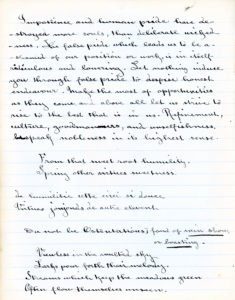 Impatience and human pride have de-
stroyed more souls, than deliberate wicked-
-ness. The false pride which leads us to be a-
shamed of our position or work is in itself
ridiculous and lowering. Let nothing induce
you through false pride to despise honest
endeavour. Make the most of opportunities
as they come and above all let us strive to
rise to the best that is in us. Refinement,
culture, and unselfishness,
bespeak nobleness in its highest sense.
From that sweet root humility.
Spring other virtues meetness.
humilitie
Do not be Ostentatious, fond of vain show,
or boasting.
Viewless in the vaulted sky
Larks pour forth their melody.
Streams which keep the meadows green
Often flow themselves unseen.